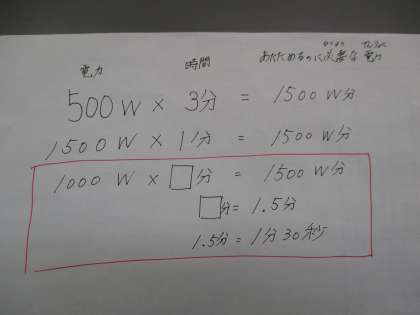 電力 時間 あたためるのに必要な電力
ひつよう でんりょく
500W × 3分 = 1500W分
1500W × 1分 = 1500W分
1000W × □分 = 1500W分
□分 = 1.5分
1.5分 = 1分30秒